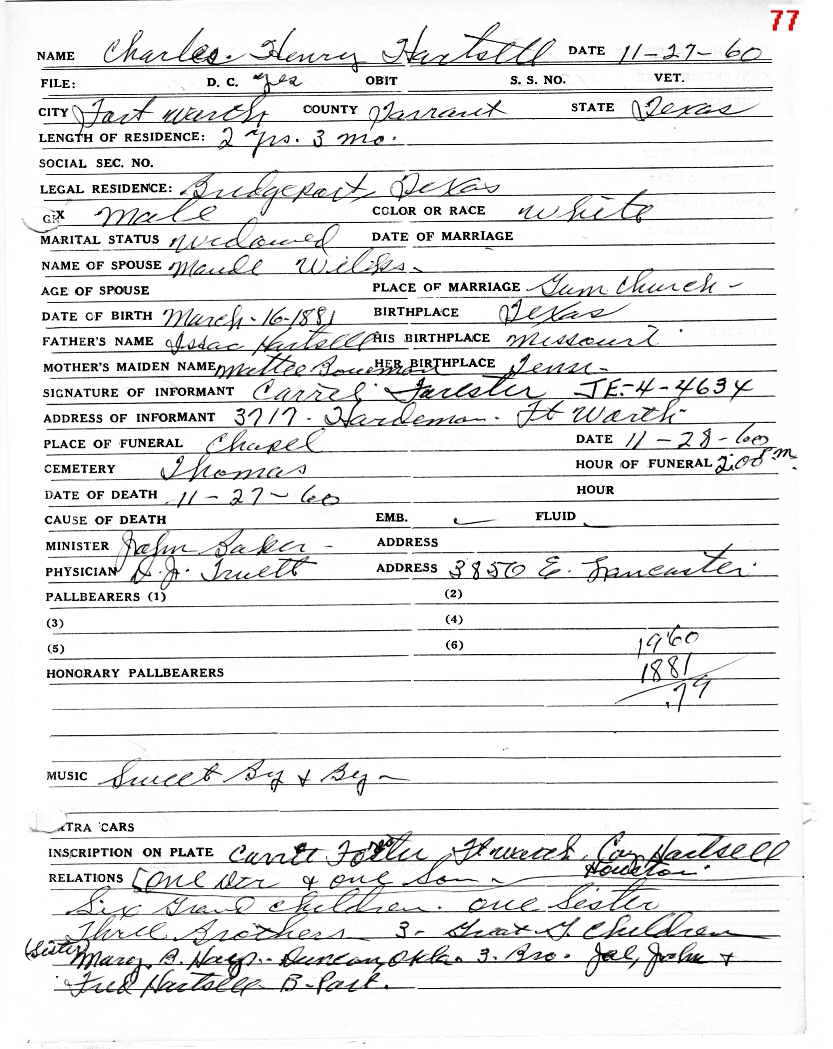 77
NAME Charles. Henry Hartsell DATE 11-27-60
FILE: D. C. yes OBIT S. S. NO. VET.
CITY Fort Worth COUNTY Tarrant STATE Texas
LENGTH OF RESIDENCE: 2 yrs. 3 mo.
SOCIAL SEC. NO.
LEGAL RESIDENCE: Bridgeport, Texas
SEX Male COLOR OR RACE White
MARITAL STATUS Widowed DATE OF MARRIAGE
NAME OF SPOUSE Maude Wilks
AGE OF SPOUSE PLACE OF MARRIAGE Gum Church -
DATE OF BIRTH March-16-1881 BIRTHPLACE Texas
FATHER'S NAME Issac Hartsell HIS BIRTHPLACE Missouri
MOTHER'S MAIDEN NAME Mattee Bowman HER BIRTHPLACE Tenn-
SIGNATURE OF INFORMANT Carrel Forester JE-4-4634
ADDRESS OF INFORMANT 3717- Hardeman- Ft Worth-
PLACE OF FUNERAL Chapel DATE 11-28-60
CEMETERY Thomas HOUR OF FUNERAL 2:00 P.M.
DATE OF DEATH 11-27-60 HOUR
CAUSE OF DEATH EMB. FLUID
MINISTER John Baker - ADDRESS
PHYSICIAN D.J. Truett ADDRESS 3850 E. Lancaster
PALLBEARERS (1) (2)
(3) (4)
(5) (6) 1960
HONORARY PALLBEARERS 1881
79
MUSIC Sweet By & By -
XTRA CARS
INSCRIPTION ON PLATE Forester Ft Worth. Coy Hartsell
RELATIONS One Dtr & One Son - Houston
Six Grand Children. One Sister
Three Brothers 3- Great G. Children
(Sister) Mary. B. Hays - Duncan, Okla. 3. Bro. Joe, John &
Fred Hartsell B-Port.